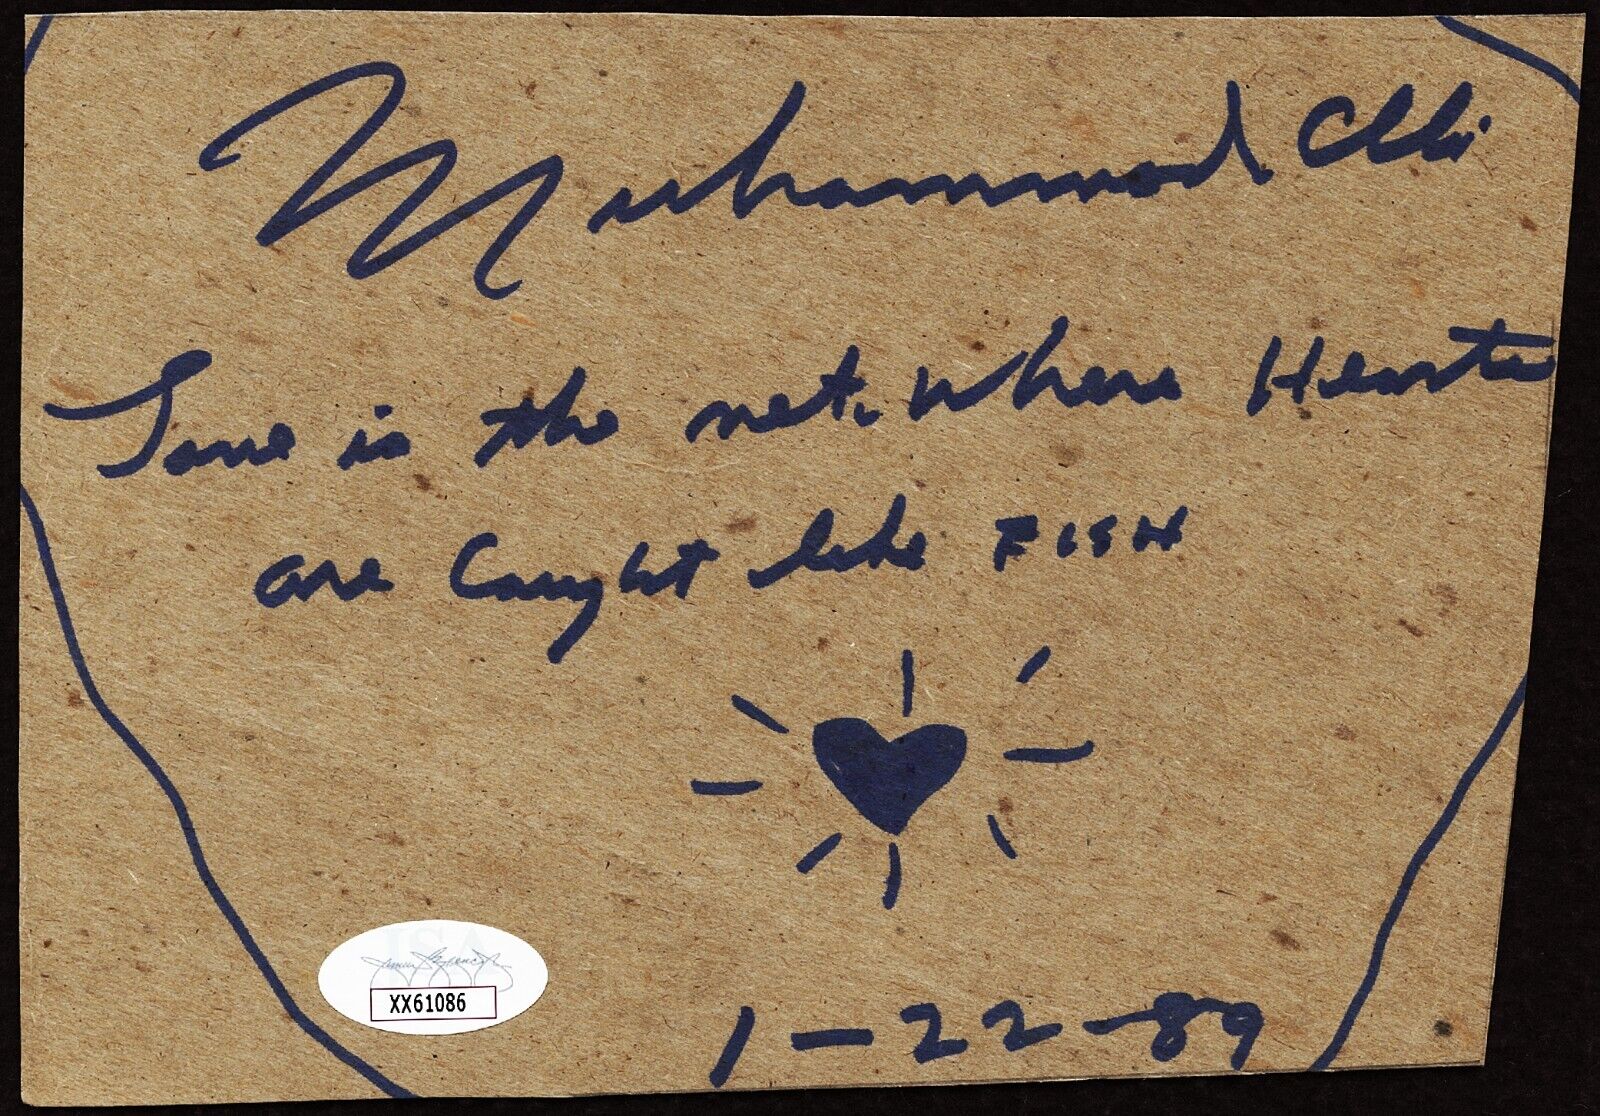 Muhammad Ali
Love is the net. where Hearts
are Caught like FISH
JSA
XX61086
1-22-89